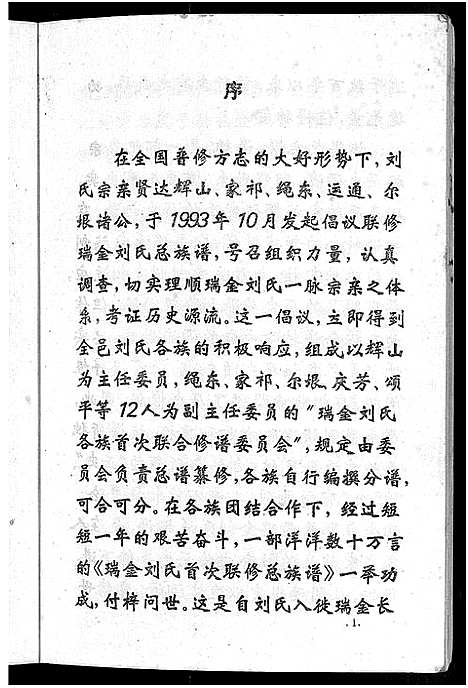 序
在全国普修方志的大好形势下,刘
氏宗亲贤达辉山、家祁、绳东、运通、尔
垠诸公,于1993年10月发起倡议联修
瑞金刘氏总族谱,号召组织力量,认真
调查,切实理顺瑞金刘氏一脉宗亲之体
系,考证历史源流。这一倡议,立即得到
全邑刘氏各族的积极响应,组成以辉山
为主任委员,绳东、家祁、尔垠、庆芳、颂
平等12人为副主任委员的"瑞金刘氏
各族首次联合修谱委员会",规定由委
员会负责总谱纂修,各族自行编撰分谱,
可合可分。在各族团结合作下,经过短
短一年的艰苦奋斗,一部洋洋数十万言
的《瑞金刘氏首次联修总族谱》一举功
成,付梓问世。这是自刘氏入徙瑞金长
.1.